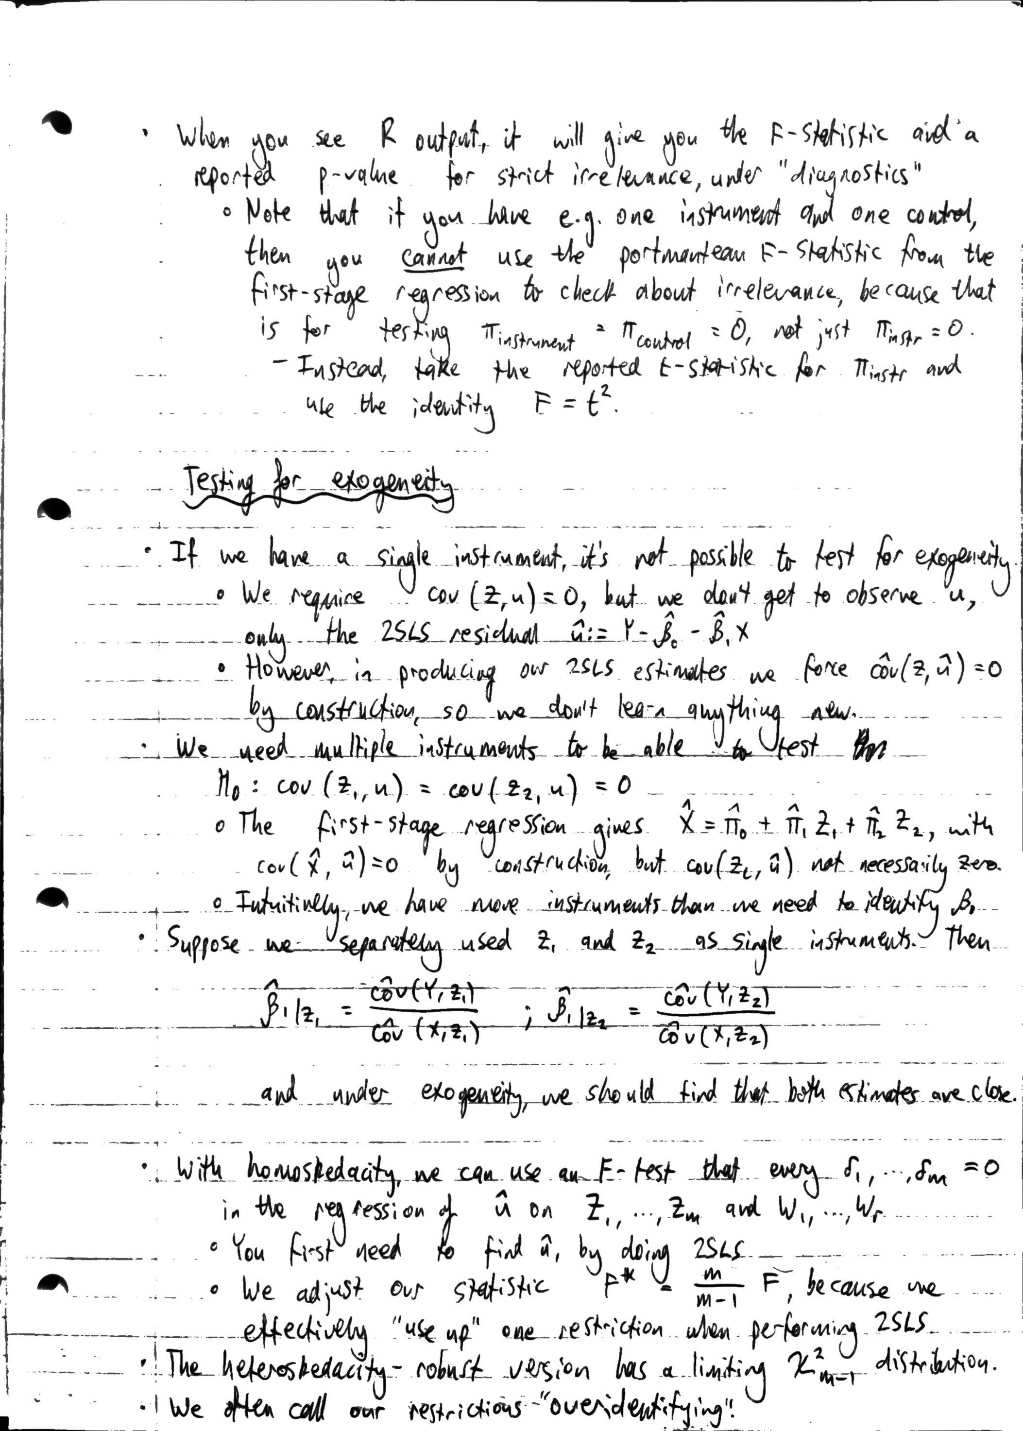 • When you see R output, it will give you the F-statistic and a
reported p-value for strict irrelevance, under "diagnostics"
◦ Note that if you have e.g. one instrument and one control,
then you cannot use the portmanteau F-statistic from the
first-stage regression to check about irrelevance, because that
is for testing π_instrument = π_control = 0, not just π_instr = 0.
– Instead, take the reported t-statistic for π_instr and
use the identity F = t².
Testing for exogeneity
• If we have a single instrument, it's not possible to test for exogeneity.
◦ We require cov(Z,u) = 0, but we don't get to observe u,
only the 2SLS residual û := Y - β̂₀ - β̂₁X
◦ However, in producing our 2SLS estimates we force côv(Z,û) = 0
by construction, so we don't learn anything new.
• We need multiple instruments to be able to test
H₀ : cov(Z₁,u) = cov(Z₂,u) = 0
◦ The first-stage regression gives X̂ = π̂₀ + π̂₁Z₁ + π̂₂Z₂, with
cov(X̂,û)=0 by construction, but cov(Zᵢ,û) not necessarily zero.
◦ Intuitively, we have more instruments than we need to identify β₁
• Suppose we separately used Z₁ and Z₂ as single instruments. Then
β̂₁|Z₁ = côv(Y,Z₁)/côv(X,Z₁) ; β̂₁|Z₂ = côv(Y,Z₂)/côv(X,Z₂)
and under exogeneity, we should find that both estimates are close.
• With homoskedacity, we can use an F-test that every δ₁, ..., δm = 0
in the regression of û on Z₁, ..., Zm and W₁, ..., Wr
◦ You first need to find û, by doing 2SLS
◦ We adjust our statistic F* = m/(m-1) F, because we
effectively "use up" one restriction when performing 2SLS
• The heteroskedacity-robust version has a limiting χ²m-1 distribution.
• We often call our restrictions "overidentifying".